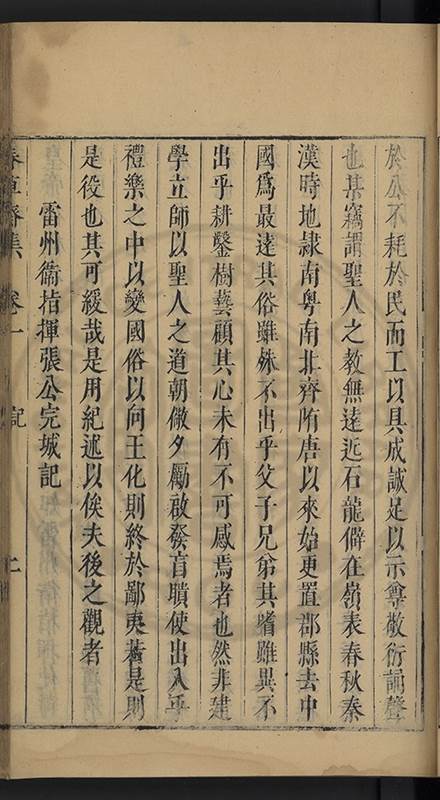 於公不耗於民而工以具成誠足以示尊敬衍誦聲
也某竊謂聖人之教無遠近石龍僻在嶺表春秋秦
漢時地隸南粵南北齊隋唐以來始更置郡縣去中
國為最遠其俗雖殊不出乎父子兄弟其嗜雖異不
出乎耕鑿樹藝顧其心未有不可感焉者也然非建
學立師以聖人之道朝儆夕厲啟發盲聵使出入乎
禮樂之中以變國俗以向王化則終於鄙夷若是則
是役也其可緩哉是用紀述以俟夫後之觀者
雷州衞指揮張公完城記
集 卷一 記 二